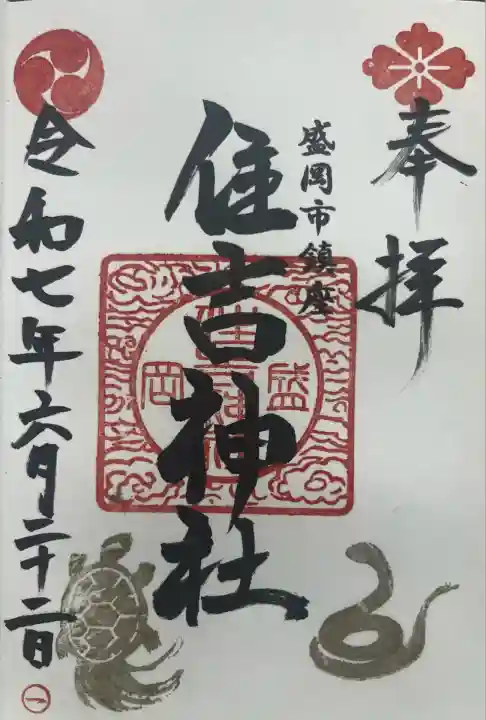 奉拝
盛岡市鎮座
住吉神社
盛岡
令和七年六月二十二日
一